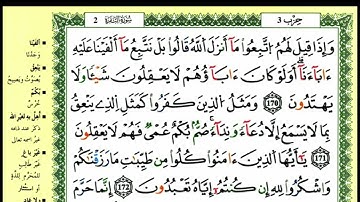 حِزْبُ 3
سُورَةُ البَقَرَةِ 2
وَإِذَا قِيلَ لَهُمُ اتَّبِعُوا مَا أَنزَلَ اللَّهُ قَالُوا بَلْ نَتَّبِعُ مَا أَلْفَيْنَا عَلَيْهِ
ءَابَاءَنَا أَوَلَوْ كَانَ ءَابَاؤُهُمْ لَا يَعْقِلُونَ شَيْئًا وَلَا
يَهْتَدُونَ 170 وَمَثَلُ الَّذِينَ كَفَرُوا كَمَثَلِ الَّذِي يَنْعِقُ
بِمَا لَا يَسْمَعُ إِلَّا دُعَاءً وَنِدَاءً صُمٌّ بُكْمٌ عُمْيٌ فَهُمْ لَا يَعْقِلُونَ
171 يَا أَيُّهَا الَّذِينَ ءَامَنُوا كُلُوا مِن طَيِّبَاتِ مَا رَزَقْنَاكُمْ
وَاشْكُرُوا لِلَّهِ إِن كُنتُمْ إِيَّاهُ تَعْبُدُونَ 172 إِنَّمَا حَرَّمَ
أَلْفَيْنَا
وَجَدْنَا
يَنْعِقُ
يُصَوِّتُ وَيَصِيحُ
بُكْمٌ
خُرْسٌ
أُهِلَّ بِهِ لِغَيْرِ اللهِ